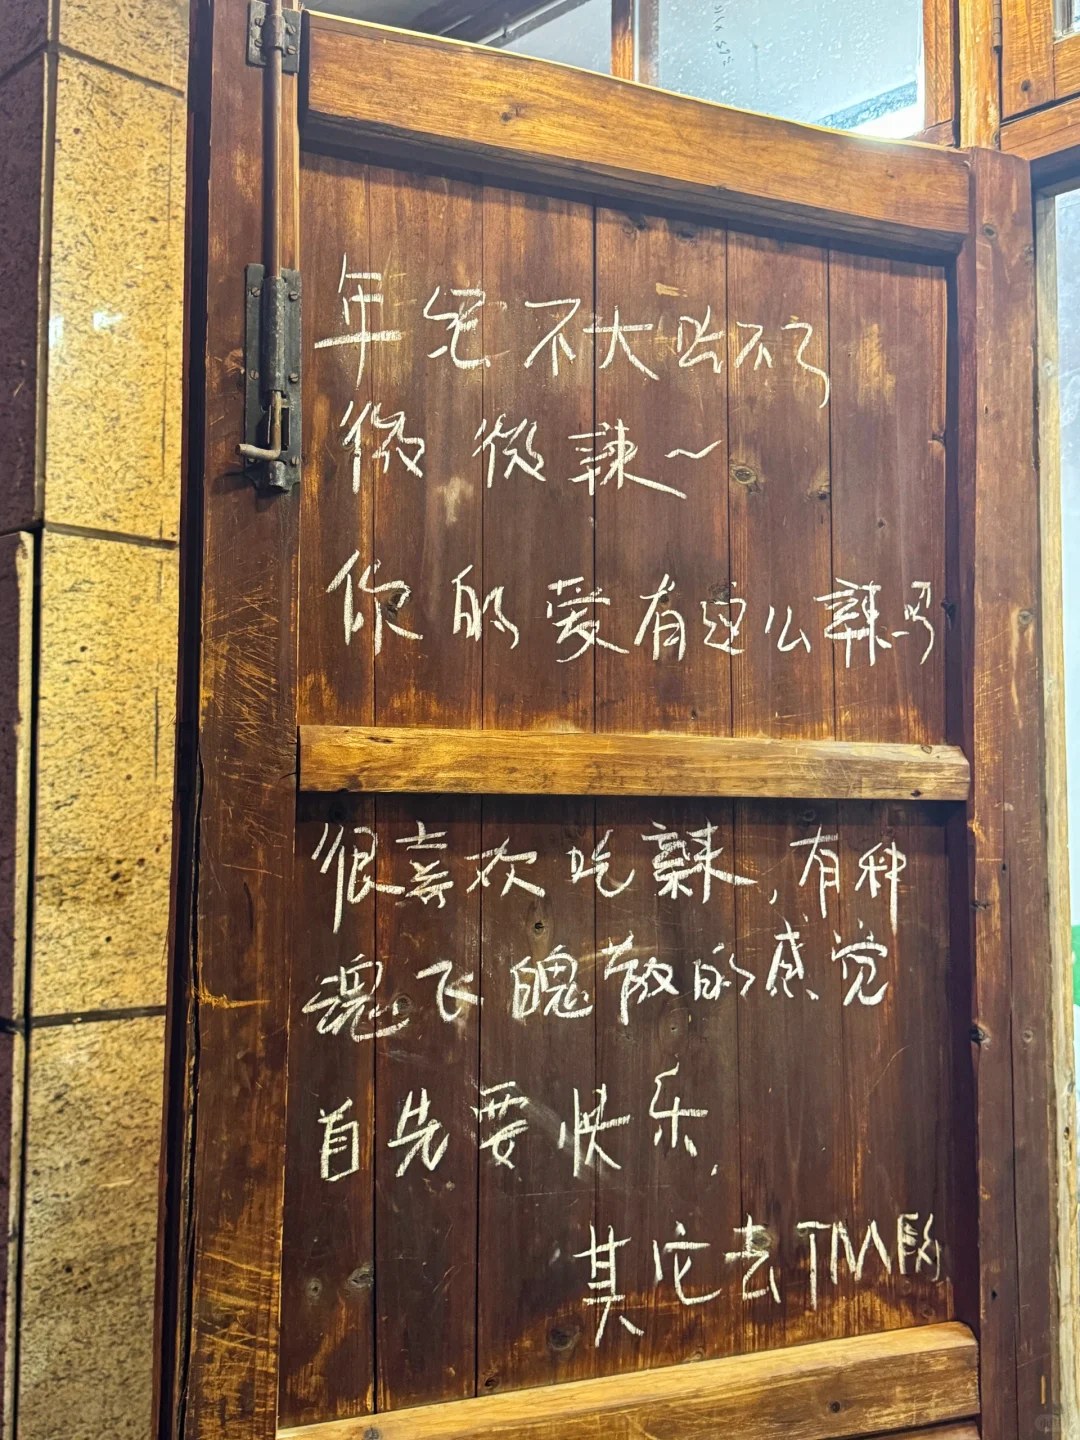 年纪不大吃不了
微微辣~
你的爱有这么辣吗
很喜欢吃辣,有种
魂飞魄散的感觉
首先要快乐,
其它去TM的